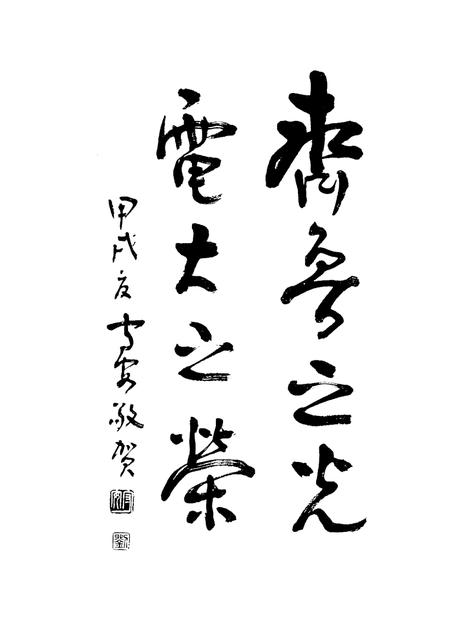 齊魯之光
電大之榮
甲戌夏敬贺
劉